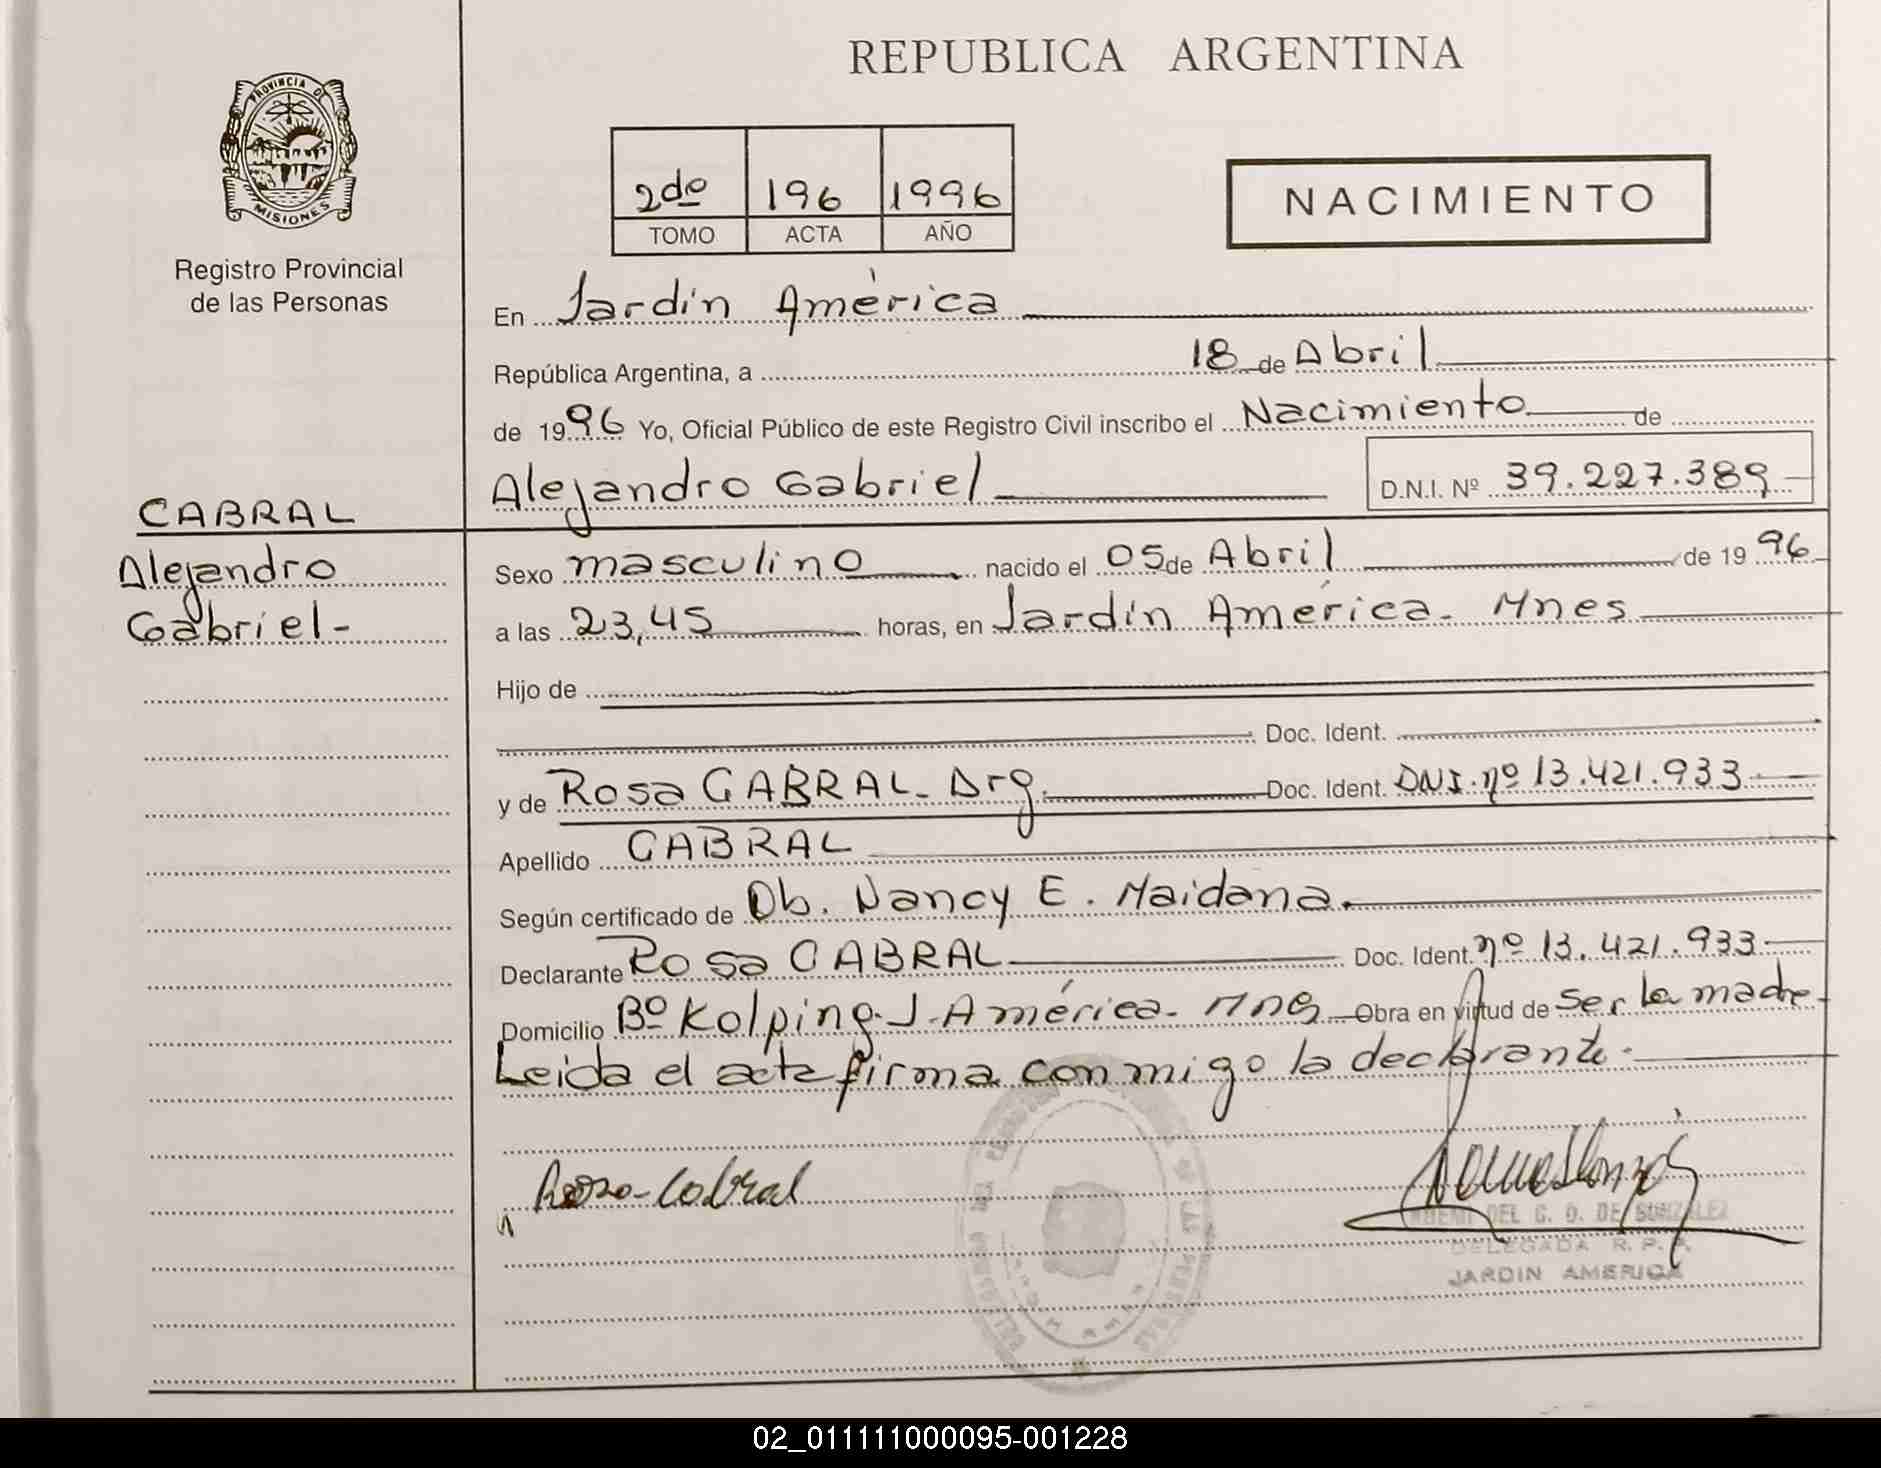 REPUBLICA ARGENTINA
PROVINCIA D
MISIONES
Registro Provincial
de las Personas
2do 196 1996
TOMO ACTA AÑO
NACIMIENTO
En Jardín América
República Argentina, a 18 de Abril
de 1996 Yo, Oficial Público de este Registro Civil inscribo el Nacimiento de
Alejandro Gabriel D.N.I. Nº 39.227.389
CABRAL
Alejandro
Gabriel-
Sexo masculino nacido el 05 de Abril de 1996
a las 23,45 horas, en Jardín América. Mnes
Hijo de
Doc. Ident.
y de Rosa CABRAL. Arg. Doc. Ident. DNI. nº 13.421.933
Apellido CABRAL
Según certificado de Ob. Nancy E. Maidana.
Declarante Rosa CABRAL Doc. Ident. nº 13.421.933
Domicilio Bº Kolping. J. América. Mnes Obra en virtud de ser la madre
Leida el acta firma conmigo la declarante.
Rosa Cabral
DEL C. D. DE GONZALEZ
DELEGADA R. P. P.
JARDIN AMERICA
02_011111000095-001228